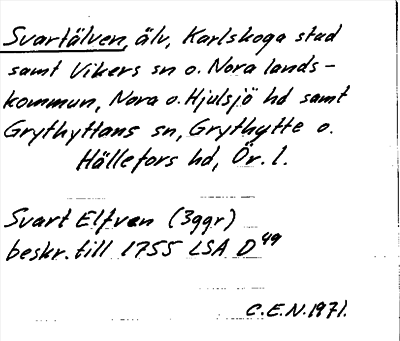 Svartälven, älv, Karlskoga stad
samt Vikers sn o. Nora lands-
kommun, Nora o. Hjulsjö hd samt
Grythyttans sn, Grythytte o.
Hällefors hd, Ör. l.
Svart Elfven (3ggr)
beskr. till 1755 LSA D49
C.E.N. 1971.